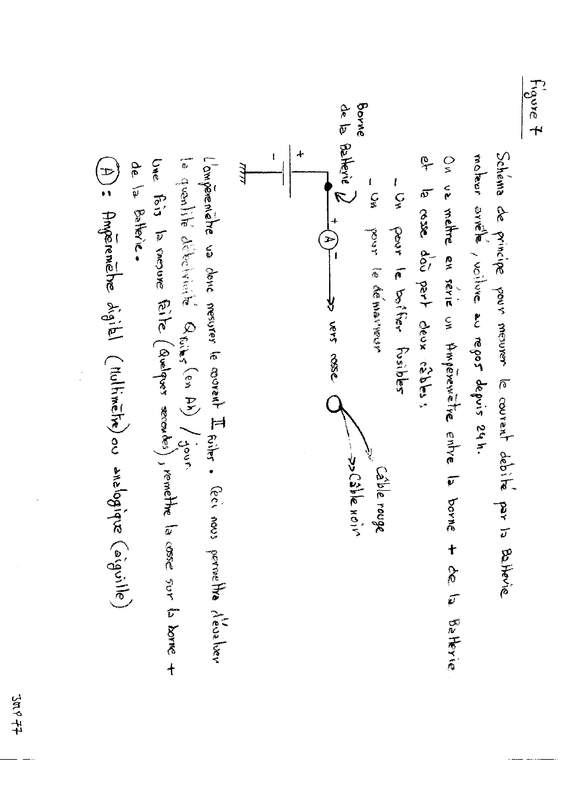 Figure 7
Schéma de principe pour mesurer le courant débité par la Batterie
moteur arrêté, voiture au repos depuis 24h.
On va mettre en série un Ampèremètre entre la borne + de la Batterie
et la cosse d'où part deux câbles :
- Un pour le boîtier fusibles
- Un pour le démarreur
Borne
de la Batterie
+ A -
vers cosse
Câble rouge
Câble noir
+
-
L'ampèremètre va donc mesurer le courant I fuites. Ceci nous permettra d'évaluer
la quantité d'électricité Q fuites (en Ah) / jour.
Une fois la mesure faite (Quelques secondes), remettre la cosse sur la borne +
de la Batterie.
A : Ampèremètre digital (Multimètre) ou analogique (aiguille)
JMP77